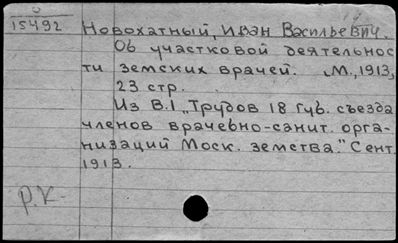 15492
Новохатный, Иван Васильевич.
Об участковой деятельнос
ти земских врачей. М., 1913,
23 стр.
Из В.1 „Трудов 18 губ. съезда
членов врачебно-санит. орга-
низаций Моск. земства." Сент.
1913.
р.к.